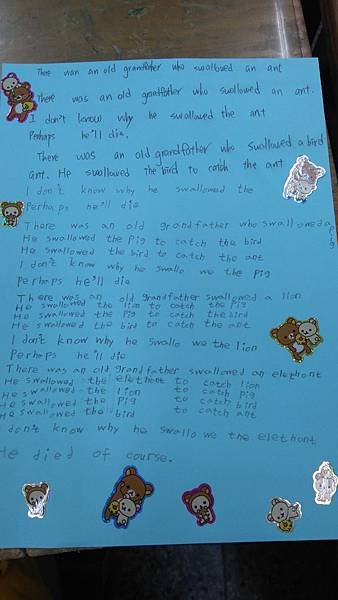 There wan an old grandfather who swallowed an ant
There was an old grandfather who swallowed an ant.
I don't know why he swallowed the ant
Perhaps he'll die.
There was an old grandfather who swallowed a bird
ant. He swallowed the bird to catch the ant
I don't know why he swallowed the
Perhaps he'll die
There was an old grandfather who swallowed a pig
He swallowed the pig to catch the bird
He swallowed the bird to catch the ant
I don't know why he swallo we the pig
Perhaps he'll die
There was an old grandfather swallowed a lion
He swallowed the lion to catch the pig
He swallowed the pig to catch the bird
He swallowed the bird to catch the ant
I don't know why he swallo we the lion
Perhaps he'll die
There was an old grandfather swallowed an elethont
He swallowed the elethont to catch lion
He swallowed the lion to catch pig
He swallowed the pig to catch bird
He swallowed the bird to catch ant
don't know why he swallo we the elethont
He died of course.